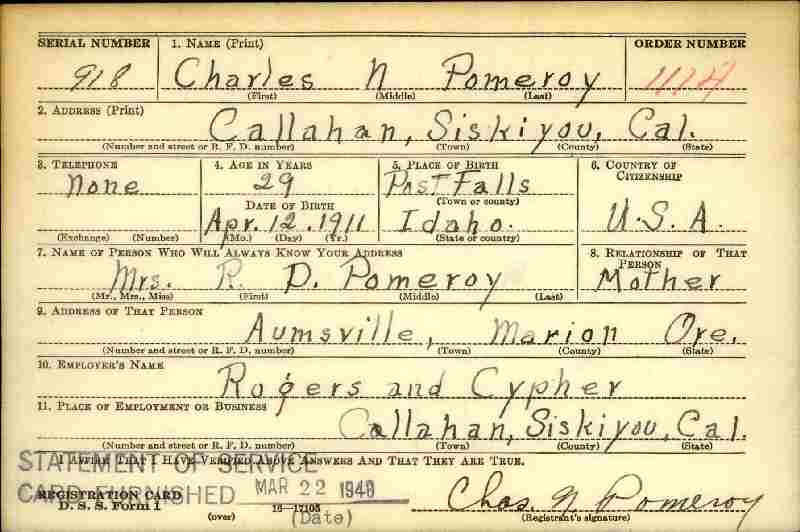 SERIAL NUMBER 1. NAME (Print) ORDER NUMBER
918 Charles N Pomeroy
(First) (Middle) (Last)
2. ADDRESS (Print)
Callahan, Siskiyou, Cal.
(Number and street or R. F. D. number) (Town) (County) (State)
3. TELEPHONE 4. AGE IN YEARS 5. PLACE OF BIRTH 6. COUNTRY OF CITIZENSHIP
None 29 Post Falls
DATE OF BIRTH (Town or county)
Apr. 12. 1911 Idaho. U.S.A.
(Exchange) (Number) (Mo.) (Day) (Yr.) (State or country)
7. NAME OF PERSON WHO WILL ALWAYS KNOW YOUR ADDRESS 8. RELATIONSHIP OF THAT PERSON
Mrs. R. D. Pomeroy Mother
(Mr., Mrs., Miss) (First) (Middle) (Last)
9. ADDRESS OF THAT PERSON
Aumsville, Marion Ore.
(Number and street or R. F. D. number) (Town) (County) (State)
10. EMPLOYER'S NAME
Rogers and Cypher
11. PLACE OF EMPLOYMENT OR BUSINESS
Callahan, Siskiyou, Cal.
(Number and street or R. F. D. number) (Town) (County) (State)
I AFFIRM THAT I HAVE VERIFIED ABOVE ANSWERS AND THAT THEY ARE TRUE.
STATEMENT OF SERVICE
CARD FURNISHED MAR 22 1948
REGISTRATION CARD
D. S. S. Form 1 (over) 16—17105 (Date)
Chas. N. Pomeroy
(Registrant's signature)